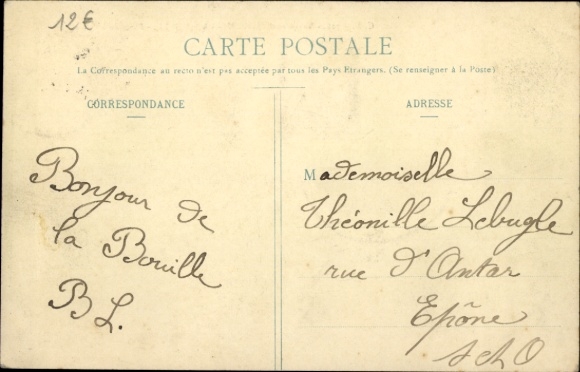 12€
CARTE POSTALE
La Correspondance au recto n'est pas acceptée par tous les Pays Etrangers. (Se renseigner à la Poste)
CORRESPONDANCE
Bonjour de
la Bouille
B L.
ADRESSE
Mademoiselle
Théonille Lebugle
rue d'Antar
Epône
S et O